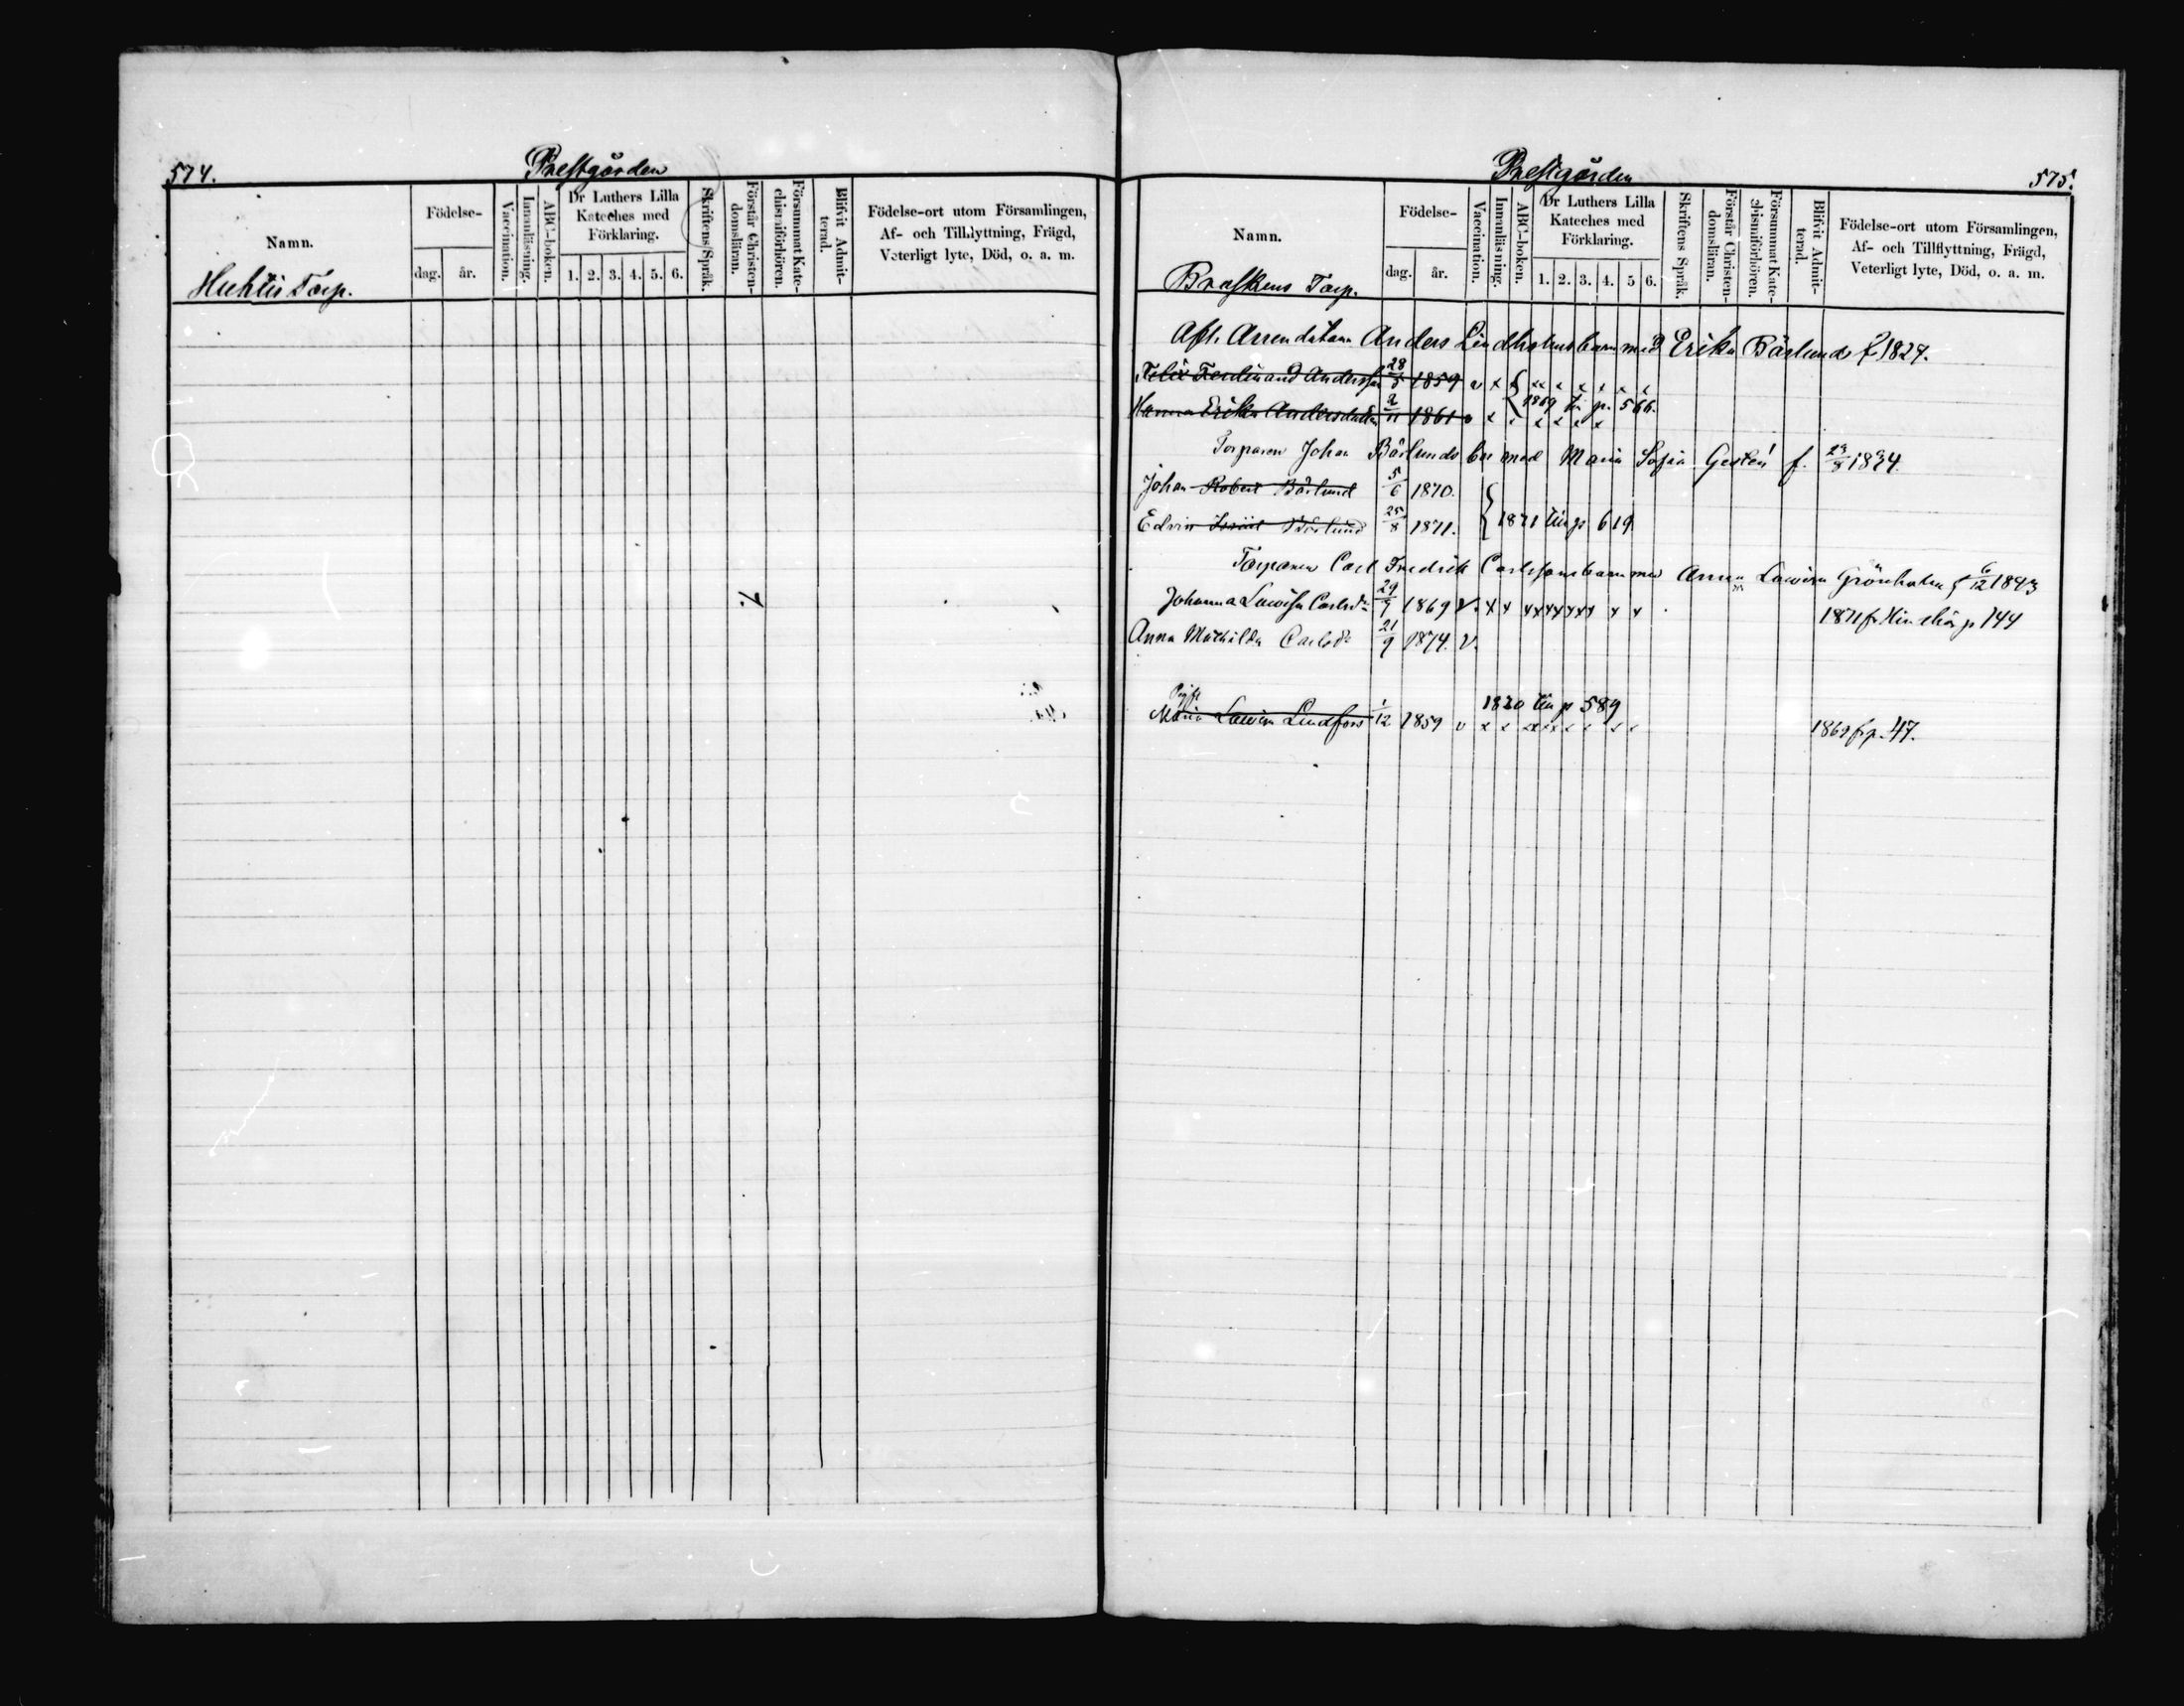 574.
Prestgården
Namn.
Födelse-
dag.
år.
Vaccination.
Innanläsning.
ABC-boken.
Dr Luthers Lilla
Kateches med
Förklaring.
1. 2. 3. 4. 5. 6.
Skriftens Språk.
Förstår Christen-
domsläran.
Försummat Kate-
chismiförhören.
Blifvit Admit-
terad.
Födelse-ort utom Församlingen,
Af- och Tillflyttning, Frägd,
Veterligt lyte, Död, o. a. m.
Huhtis Torp.
Prestgården
575.
Namn.
Födelse-
dag.
år.
Vaccination.
Innanläsning.
ABC-boken.
Dr Luthers Lilla
Kateches med
Förklaring.
1. 2. 3. 4. 5 6.
Skriftens Språk.
Förstår Christen-
domsläran.
Försummat Kate-
chismiförhören.
Blifvit Admit-
terad.
Födelse-ort utom Församlingen,
Af- och Tillflyttning, Frägd,
Veterligt lyte, Död, o. a. m.
Braskens Torp.
Afl. Arrendatorn Anders Lindholms barn med Erika Bärlund f 1829.
Felix Ferdinand Andersson 28/5 1859 v x x x x x x x x
Hanna Erika Andersdotter 2/11 1861 v x x x x x x { 1869 tin p. 566.
Torparen Johan Bärlunds bn med Maria Sofia Gestén f. 29/8 1834.
Johan Robert Bärlund 5/6 1870.
Edvin Bärlund 25/8 1871. { 1871 tin p 619
Torparen Carl Fredrik Carlssons barn med Anna Lovisa Grönholm f 6/12 1843
Johanna Lovisa Carlsdr 29/9 1869 v. x x x x x x x x x x 1871 fr p 144
Anna Mathilda Carlsdr 21/9 1874. v.
1870 tin p 589
Maria Lovisa Lindfors 1/12 1859 v x x x x x x x x x 1869 fr p. 47.